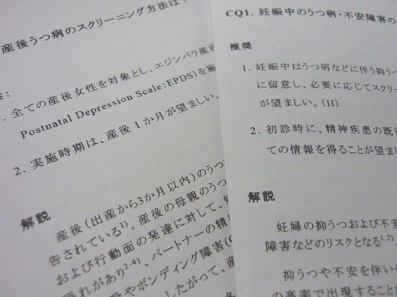 産後うつ病のスクリーニング方法は
1. 全ての産後女性を対象とし、エジンバラ産
Postnatal Depression Scale:EPDS)を施
2. 実施時期は、産後1か月が望ましい。
解説
産後(出産から3か月以内)のうつ
告されている1)。産後の母親のうつ
および行動面の発達に対して、
れがあり2-4)、パートナーの精
やボンディング障害(
したがって、産
CQ1. 妊娠中のうつ病・不安障害の
推奨
1. 妊娠中はうつ病などに伴う抑うつ
に留意し、必要に応じてスクリー
が望ましい。(II)
2. 初診時に、精神疾患の既
ての情報を得ることが望ま
解説
妊婦の抑うつおよび不安
障害などのリスクとなる1,2)。
抑うつや不安を伴い
の高率で出現すること